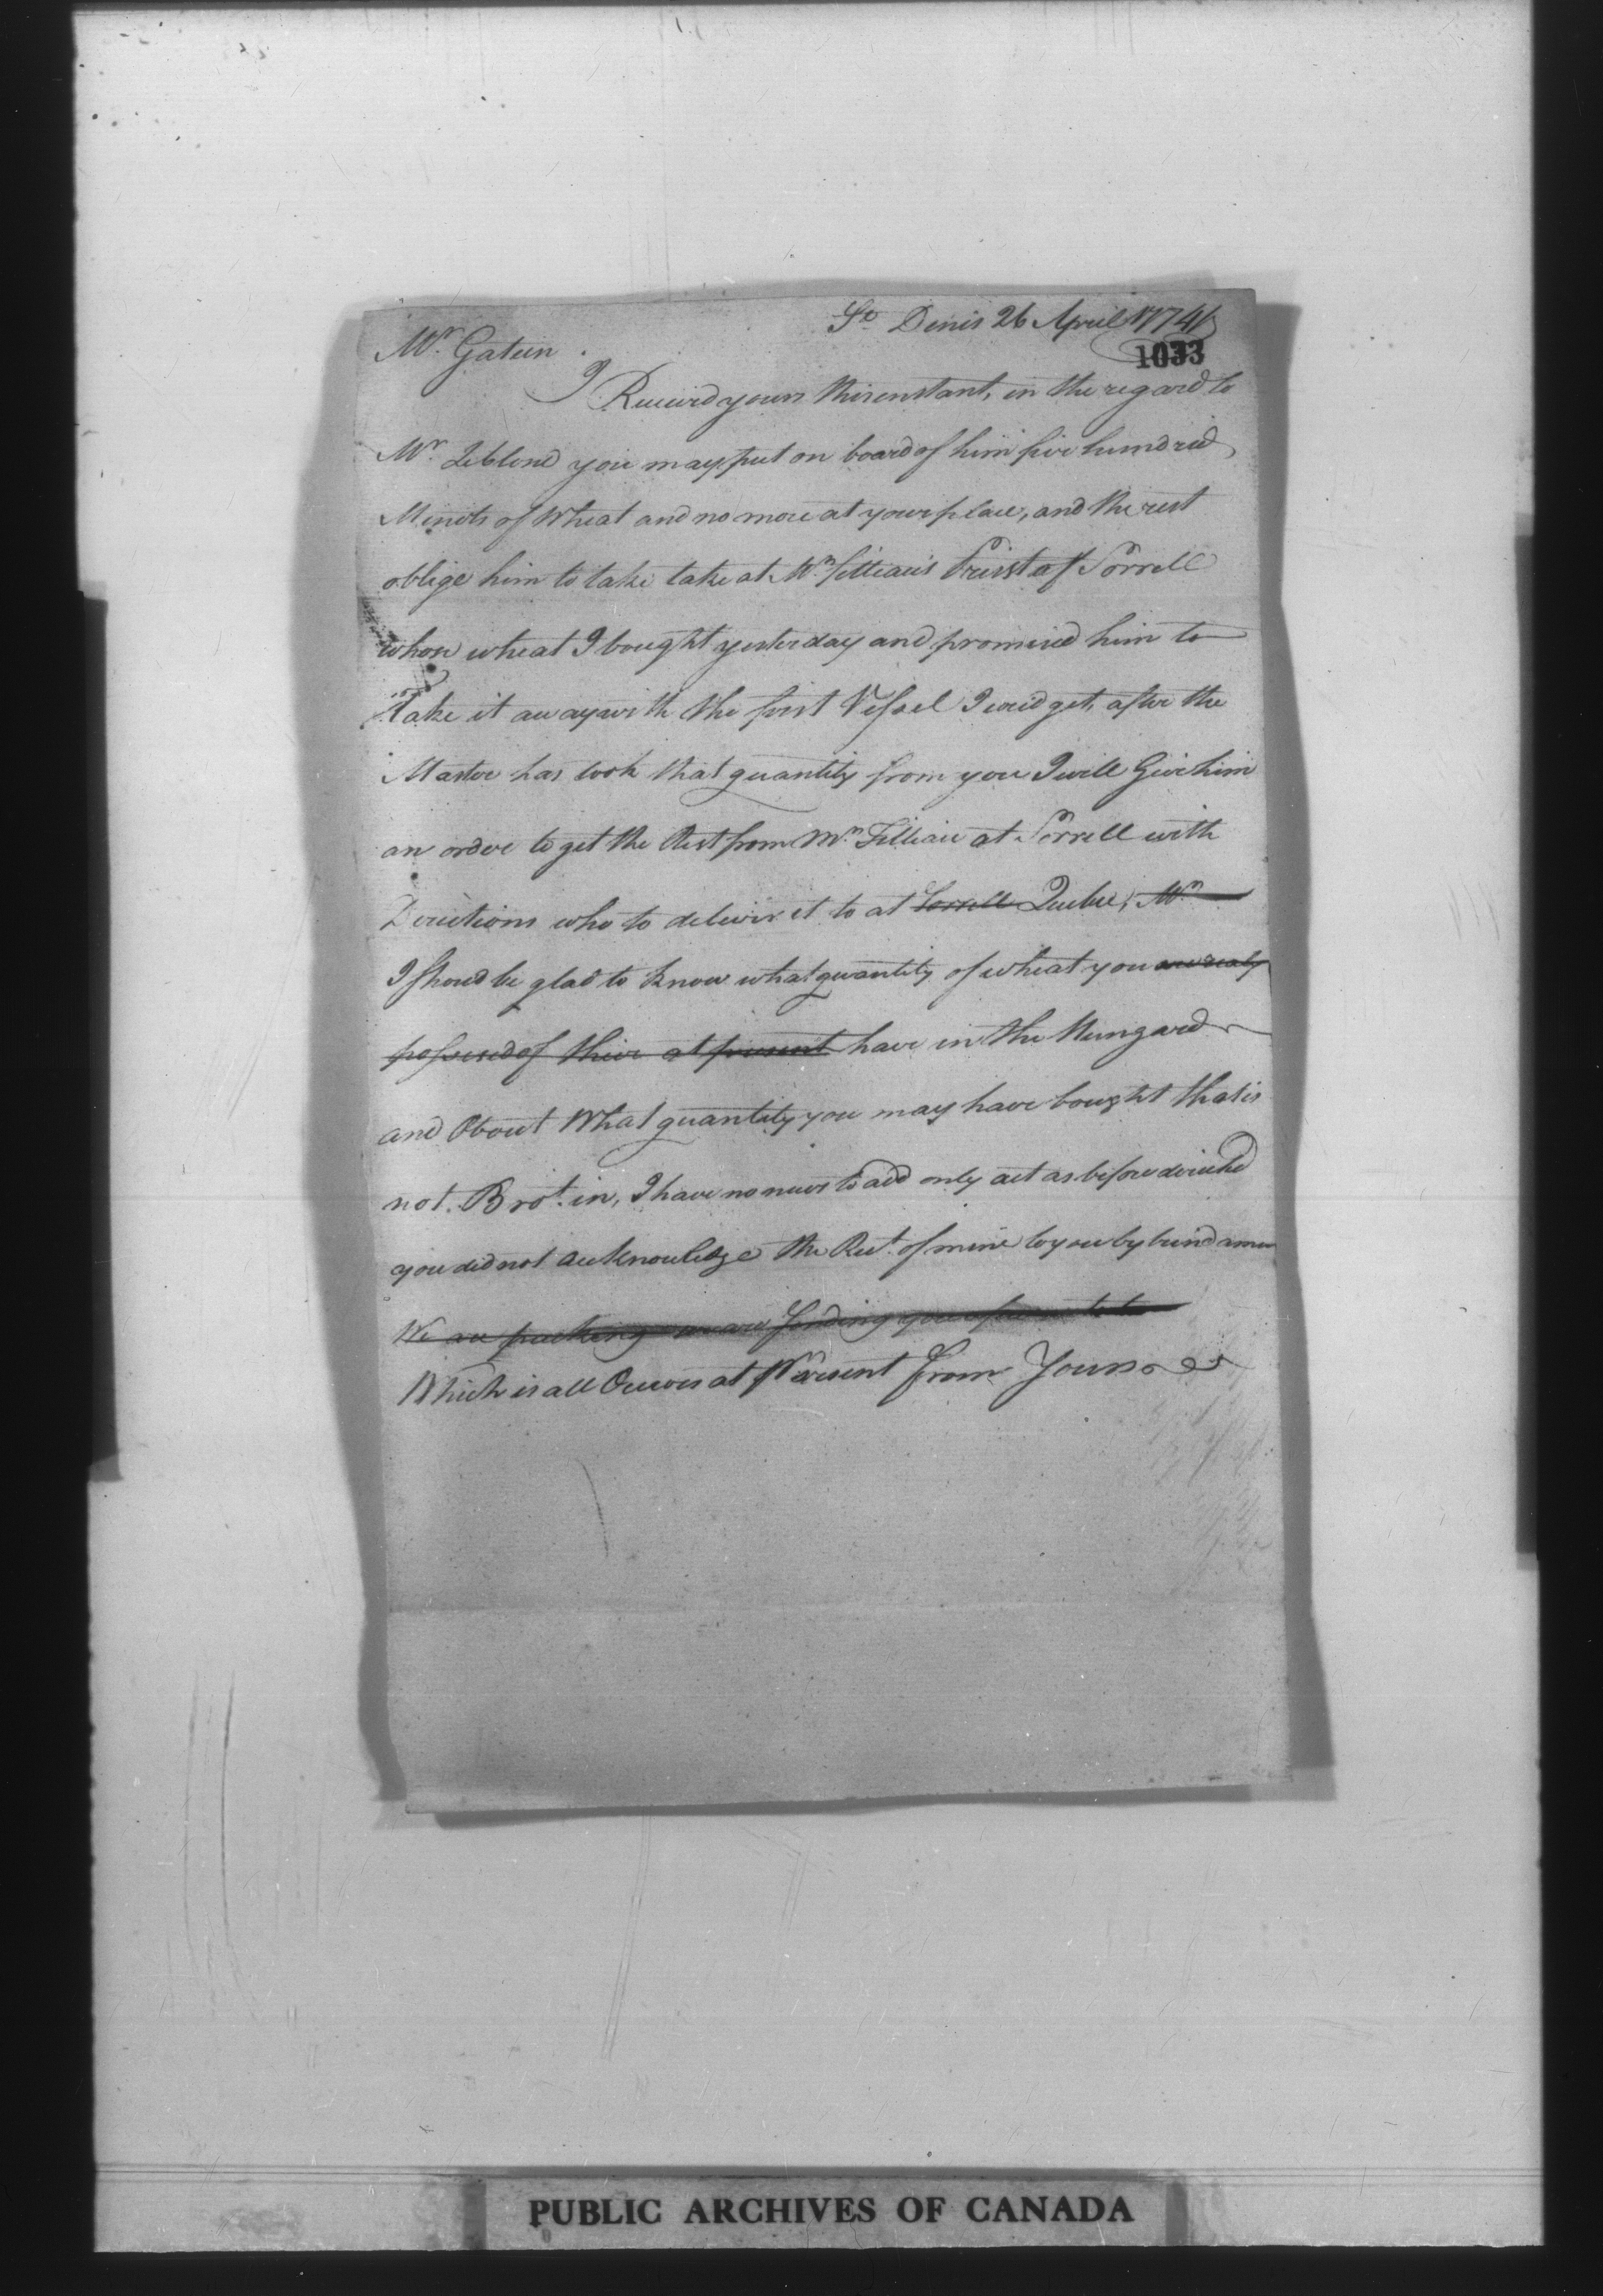 St Denis 26 April 1774
1033
Mr. Gatien
I Receivd yours this instant, in the regard to
Mr. Leblond you may put on board of him five hundred
Minots of Wheat and no more at your place, and the rest
oblige him to take take at Mr. filliau's Priest of Sorrell
whose wheat I bought yesterday and promised him to
Take it away with the first Vessel I coud get, after the
Master has took that quantity from you I will Give him
an order to get the Rest from Mr. Filliau at Sorrell with
Directions who to deliver it to at Sorrell Quebec, Mr.
I shoud be glad to know what quantity of wheat you are realy
possessed of their at present have in the Hungard
and About What quantity you may have bought that is
not Brot. in, I have no news to add only act as before directed
you did not acknowledge the Rect. of mine to you by
We are sending you
Which is all Occurs at Present from Yours
PUBLIC ARCHIVES OF CANADA